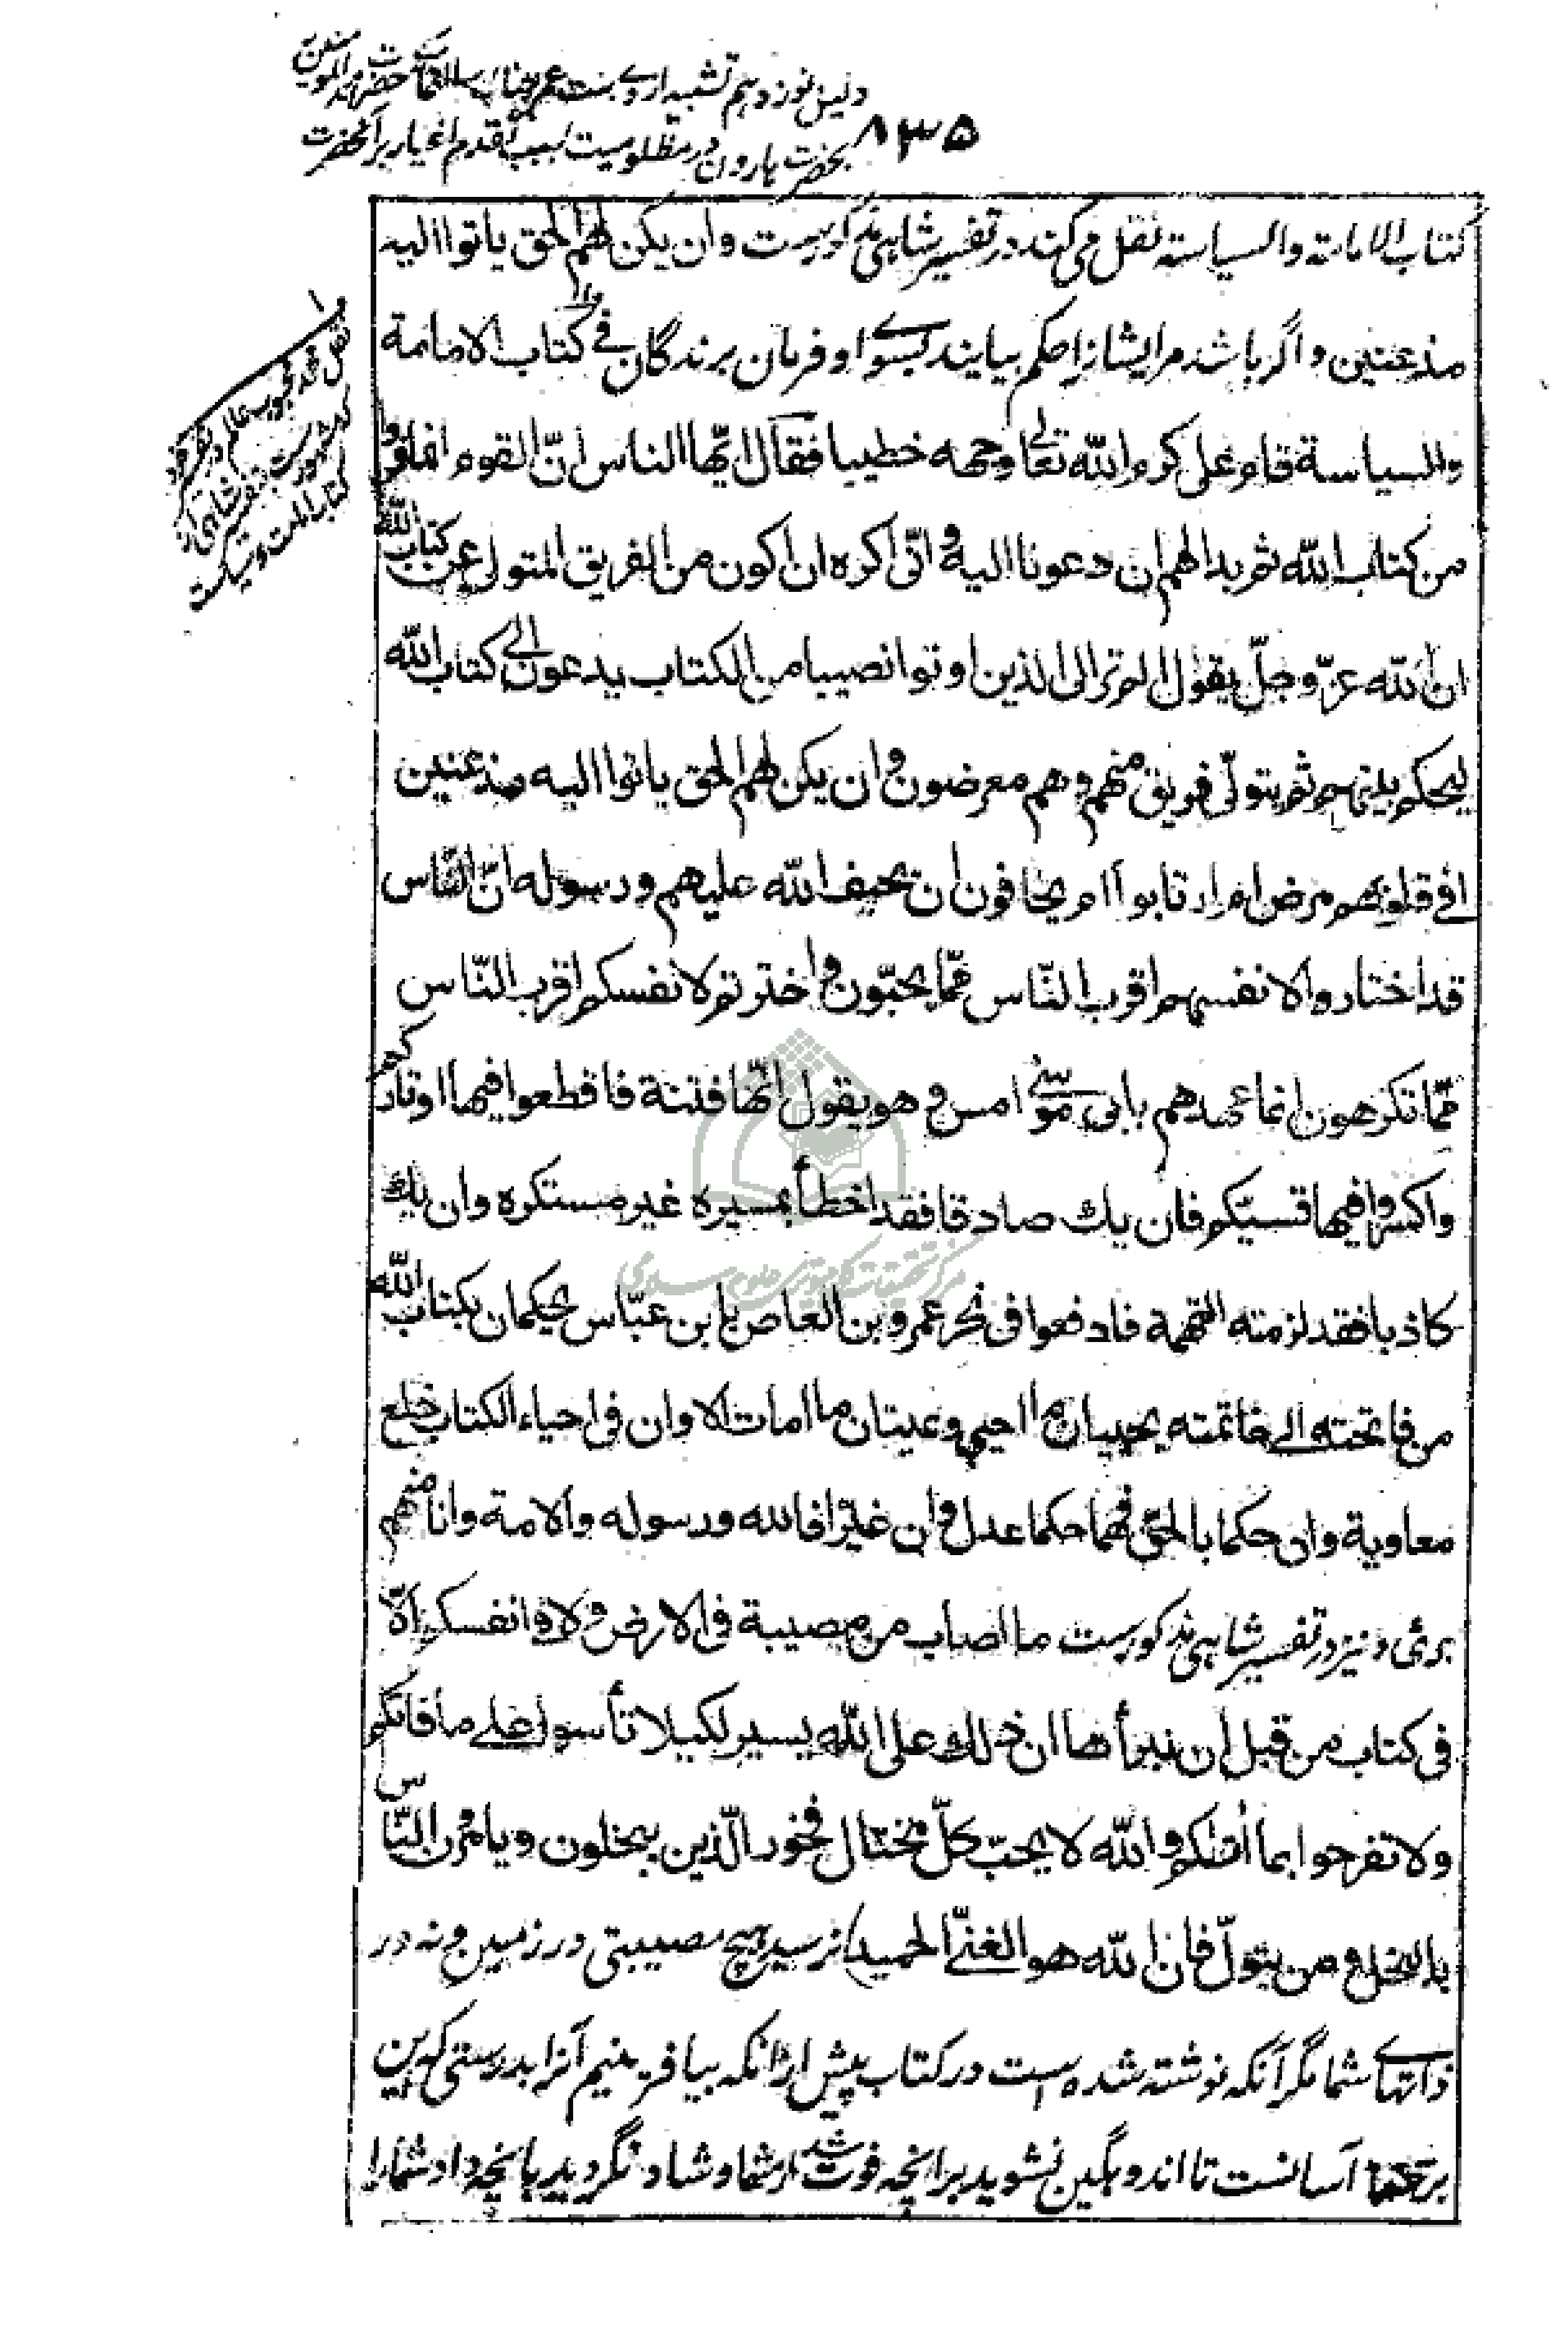 دلیل نوزدهم تشبیه اروی بنت عم جناب رسالتمآب حضرت امیرالمومنین
۸۳۵
بحضرت هارون در مظلومیت بسبب تقدم اغیار بر آنحضرت
کتاب الامامته والسیاسته نقل می کند در تفسیر شاهی مذکورست وان یکن لهم الحق یاتوا الیه
مذعنین واگر باشد مر ایشانرا حکم بیایند بسوی او فرمان برندگان وفی کتاب الامامة
والسیاسة قام علی کرم الله تعالی وجهه خطیبا فقال ایّها الناس انّ القوم انما فروا
من کتاب الله ثم بدا لهم ان دعونا الیه وانّی اکره ان اکون من الفریق المتول عن کتاب الله
ان الله عزّ وجلّ یقول الم تر الی الذین اوتوا نصیبا من الکتاب یدعون الی کتاب الله
لیحکم بینهم ثم یتولّی فریق منهم وهم معرضون وان یکن لهم الحق یاتوا الیه مذعنین
افی قلوبهم مرض ام ارتابوا ام یخافون ان یحیف الله علیهم ورسوله انّ النّاس
قد اختاروا لانفسهم اقرب النّاس ممّا یحبّون واخترتم لانفسکم اقرب النّاس
ممّا تکرهون انما عهدهم بابی موسی امس وهو یقول انّها فتنة فاقطعوا فیها اوتارکم
واکسروا فیها قسیّکم فان یك صادقا فقد اخطأ بمسیره غیر مستکره وان یك
کاذبا فقد لزمته التهمة فادفعوا فی نحر عمرو بن العاص بابن عبّاس یحکمان بکتاب الله
من فاتحته الی خاتمته یحییان ما احیی ویمیتان ما امات الا وان فی احیاء الکتاب خلع
معاویة وان حکما بالحق فهما حکما عدل وان غیّرا فالله ورسوله والامة وانا منهم
بری و نیز در تفسیر شاهی مذکورست ما اصاب من مصیبة فی الارض ولا فی انفسکم الّا
فی کتاب من قبل ان نبرأها ان ذلك علی الله یسیر لکیلا تأسوا علی ما فاتکم
ولا تفرحوا بما أتٰکم والله لا یحبّ کلّ مختال فخور الّذین یبخلون ویامرون النّاس
بالبخل ومن یتولّ فان الله هو الغنیّ الحمید نرسید هیچ مصیبتی در زمین و نه در
ذاتهای شما مگر آنکه نوشته شده است در کتاب پیش ازانکه بیافرینیم آنرا بدرستی که این
بر خدا آسانست تا اندوهگین نشوید برانچه فوت شد از شما و شاد نگردید بانچه داد شما را
نقل محبوب عالم در تفسیر خود
که مشهورست بتفسیر شاهی از
کتاب امامت و سیاست